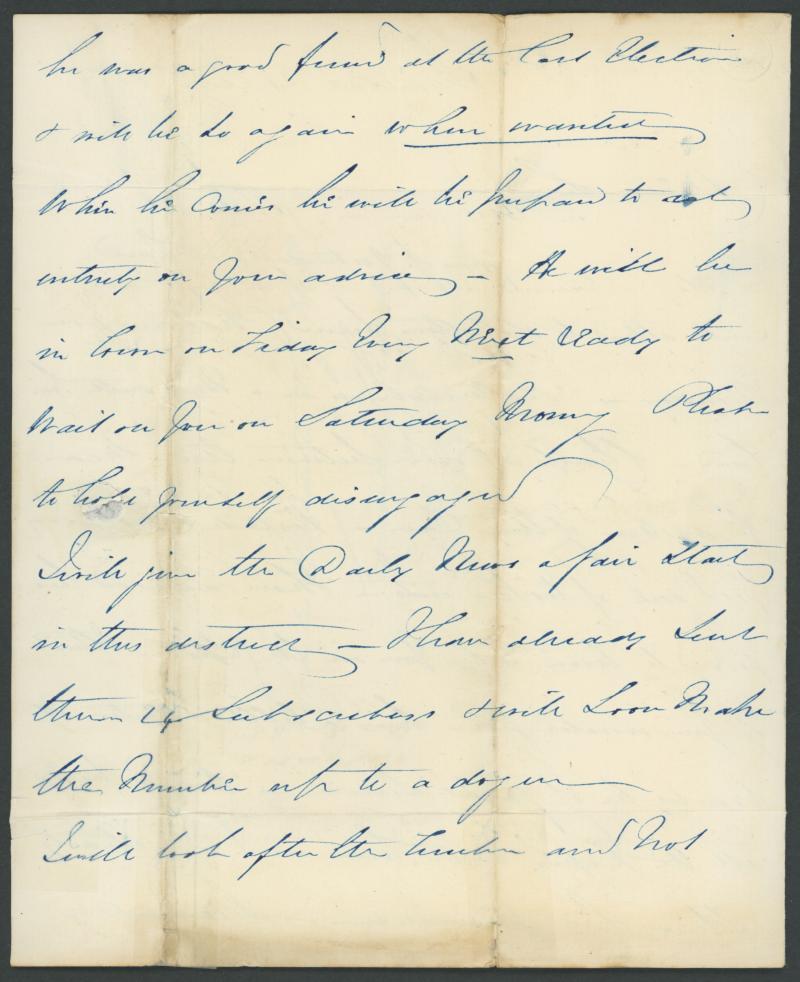 he was a good friend at the last Election
& will be so again when wanted
When he comes he will be prepared to act
entirely on your advice — He will be
in town on Friday Evening Next ready to
wait on you on Saturday Morning Please
to hold yourself disengaged
I will give the Daily News a fair start
in this district — I have already sent
them Subscribers & will soon Make
the Number up to a dozen
I will look after the timber and Not